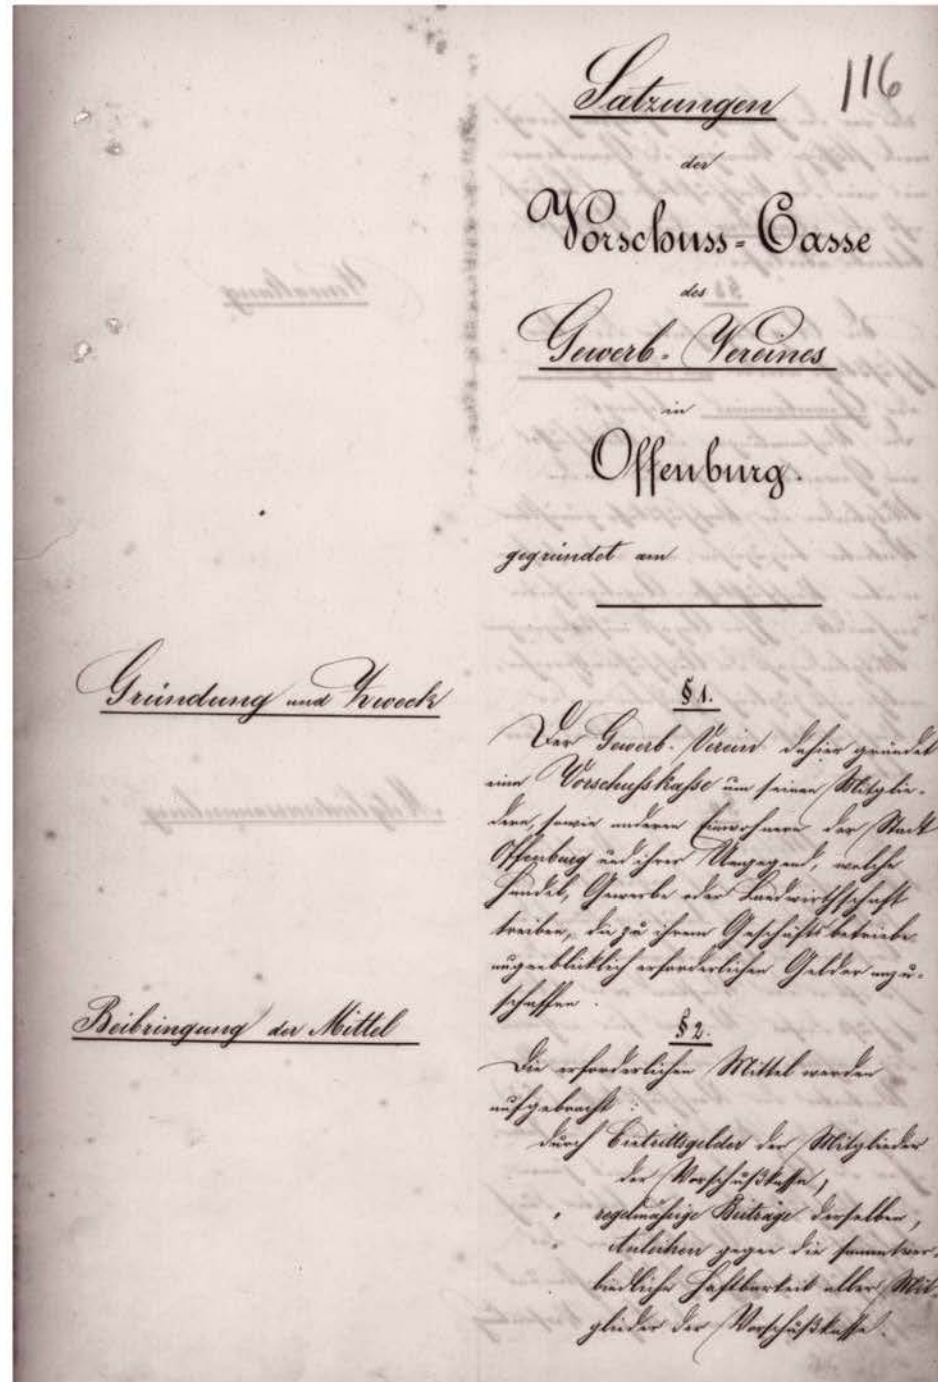 116
Satzungen
der
Vorschuss-Casse
des
Gewerb-Vereines
in
Offenburg.
gegründet am
Gründung und Zweck
§ 1.
Der Gewerb-Verein dahier gründet
eine Vorschußkasse um seinen Mitglie-
dern, sowie anderen Einwohnern der Stadt
Offenburg und ihrer Umgegend, welche
Handel, Gewerbe oder Landwirthschaft
treiben, die zu ihrem Geschäftsbetriebe
augenblicklich erforderlichen Gelder anzu-
schaffen.
Beibringung der Mittel
§ 2.
Die erforderlichen Mittel werden
aufgebracht:
durch Eintrittsgelder der Mitglieder
der Vorschußkasse,
" regelmäßige Beiträge derselben,
" Anleihen gegen die sammtver-
bindliche Haftbarkeit aller Mit-
glieder der Vorschußkasse.